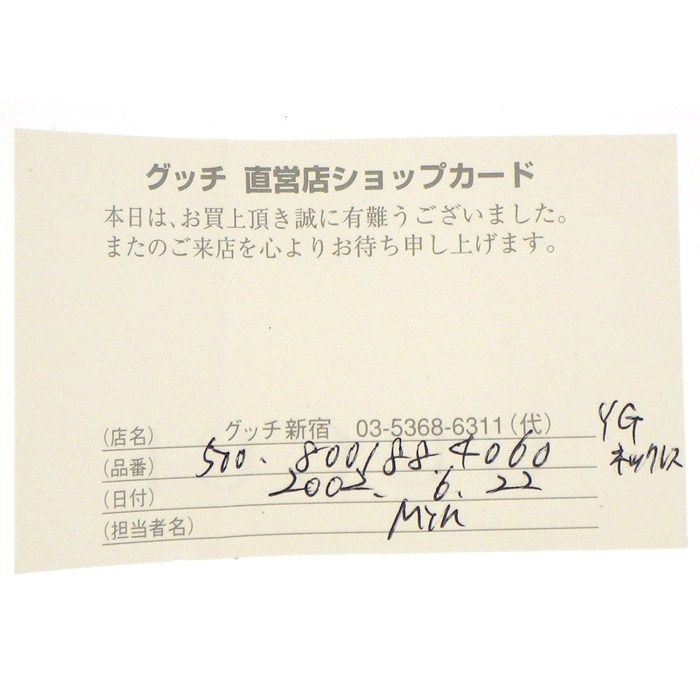 グッチ 直営店ショップカード
本日は、お買上頂き誠に有難うございました。
またのご来店を心よりお待ち申し上げます。
(店名) グッチ新宿 03-5368-6311(代)
YG
ネックレス
(品番) 500. 800188.4060
(日付) 2002. 6. 22
(担当者名)